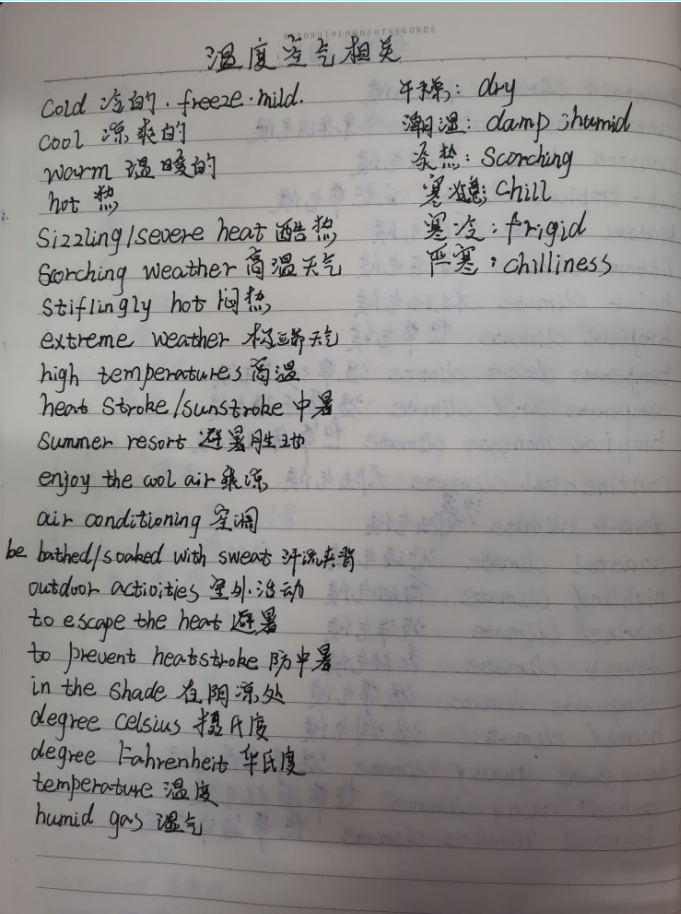 温度空气相关
cold 冷的.freeze.mild.
cool 凉爽的
warm 温暖的
hot 热
Sizzling/severe heat 酷热
Scorching weather 高温天气
stiflingly hot 闷热
extreme weather 极端天气
high temperatures 高温
heat Stroke/sunstroke 中暑
Summer resort 避暑胜地
enjoy the cool air 乘凉
air conditioning 空调
be bathed/soaked with sweat 汗流夹背
outdoor activities 室外活动
to escape the heat 避暑
to prevent heatstroke 防中暑
in the shade 在阴凉处
degree Celsius 摄氏度
degree Fahrenheit 华氏度
temperature 温度
humid gas 湿气
干燥: dry
潮湿: damp;humid
炎热: Scorching
寒: Chill
寒冷: frigid
严寒: chilliness